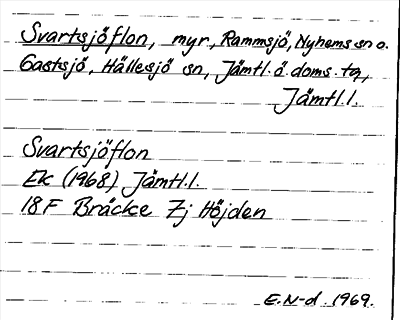 Svartsjöflon, myr, Rammsjö, Nyhems sn o.
Gastsjö, Hällesjö sn, Jämtl. ö. doms. tg,
Jämtl.l.
Svartsjöflon
Ek (1968) Jämtl.l.
18F Bräcke 7j Höjden
E.N-d. 1969.